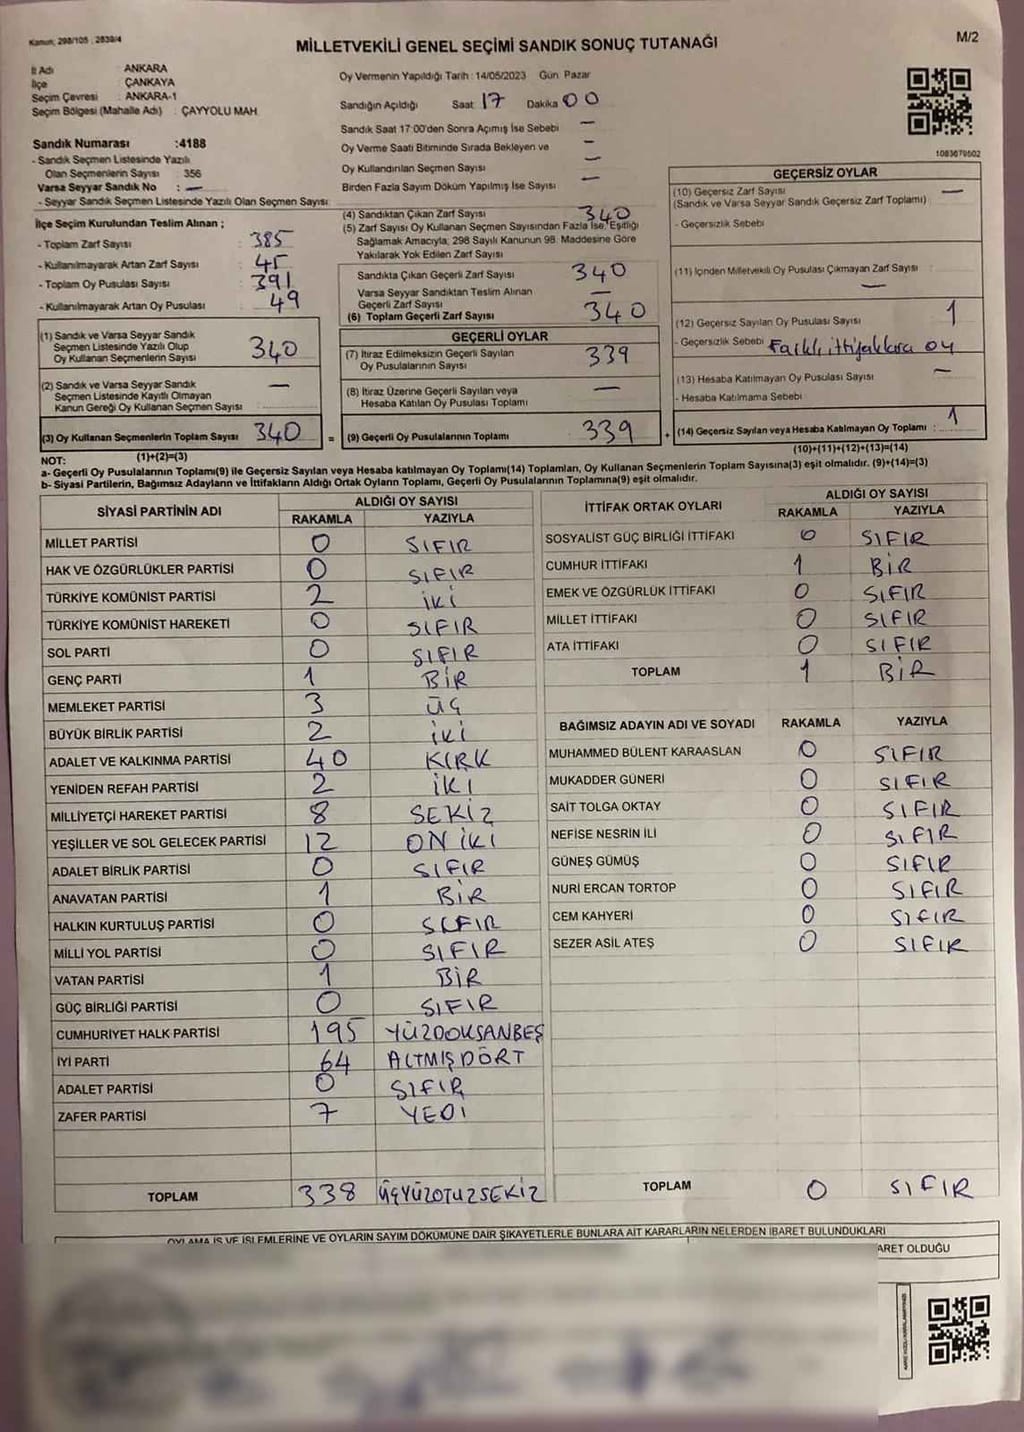 Kanun; 298/105 , 2839/4
MİLLETVEKİLİ GENEL SEÇİMİ SANDIK SONUÇ TUTANAĞI
M/2
İl Adı ANKARA
İlçe ÇANKAYA
Seçim Çevresi : ANKARA-1
Seçim Bölgesi (Mahalle Adı) : ÇAYYOLU MAH
Sandık Numarası :4188
- Sandık Seçmen Listesinde Yazılı
Olan Seçmenlerin Sayısı : 356
Varsa Seyyar Sandık No : —
- Seyyar Sandık Seçmen Listesinde Yazılı Olan Seçmen Sayısı
Oy Vermenin Yapıldığı Tarih : 14/05/2023 Gün: Pazar
Sandığın Açıldığı Saat 17 Dakika 00
Sandık Saat 17:00'den Sonra Açımış İse Sebebi —
Oy Verme Saati Bitiminde Sırada Bekleyen ve —
Oy Kullandırılan Seçmen Sayısı —
Birden Fazla Sayım Döküm Yapılmış İse Sayısı —
1083679502
İlçe Seçim Kurulundan Teslim Alınan ;
- Toplam Zarf Sayısı 385
- Kullanılmayarak Artan Zarf Sayısı 45
- Toplam Oy Pusulası Sayısı 391
- Kullanılmayarak Artan Oy Pusulası 49
(1) Sandık ve Varsa Seyyar Sandık
Seçmen Listesinde Yazılı Olup
Oy Kullanan Seçmenlerin Sayısı 340
(2) Sandık ve Varsa Seyyar Sandık
Seçmen Listesinde Kayıtlı Olmayan
Kanun Gereği Oy Kullanan Seçmen Sayısı —
(3) Oy Kullanan Seçmenlerin Toplam Sayısı 340 =
(1)+(2)=(3)
(4) Sandıktan Çıkan Zarf Sayısı 340
(5) Zarf Sayısı Oy Kullanan Seçmen Sayısından Fazla İse, Eşitliği
Sağlamak Amacıyla, 298 Sayılı Kanunun 98. Maddesine Göre
Yakılarak Yok Edilen Zarf Sayısı
Sandıkta Çıkan Geçerli Zarf Sayısı 340
Varsa Seyyar Sandıktan Teslim Alınan
Geçerli Zarf Sayısı —
(6) Toplam Geçerli Zarf Sayısı 340
GEÇERLİ OYLAR
(7) İtiraz Edilmeksizin Geçerli Sayılan
Oy Pusulalarının Sayısı 339
(8) İtiraz Üzerine Geçerli Sayılan veya
Hesaba Katılan Oy Pusulası Toplamı —
(9) Geçerli Oy Pusulalarının Toplamı 339 +
GEÇERSİZ OYLAR
(10) Geçersiz Zarf Sayısı —
(Sandık ve Varsa Seyyar Sandık Geçersiz Zarf Toplamı)
- Geçersizlik Sebebi
(11) İçinden Milletvekili Oy Pusulası Çıkmayan Zarf Sayısı :
—
(12) Geçersiz Sayılan Oy Pusulası Sayısı 1
- Geçersizlik Sebebi Farklı ittifaklara oy
(13) Hesaba Katılmayan Oy Pusulası Sayısı —
- Hesaba Katılmama Sebebi
(14) Geçersiz Sayılan veya Hesaba Katılmayan Oy Toplamı : 1
(10)+(11)+(12)+(13)=(14)
NOT:
a- Geçerli Oy Pusulalarının Toplamı(9) ile Geçersiz Sayılan veya Hesaba katılmayan Oy Toplamı(14) Toplamları, Oy Kullanan Seçmenlerin Toplam Sayısına(3) eşit olmalıdır. (9)+(14)=(3)
b- Siyasi Partilerin, Bağımsız Adayların ve İttifakların Aldığı Ortak Oyların Toplamı, Geçerli Oy Pusulalarının Toplamına(9) eşit olmalıdır.
SİYASİ PARTİNİN ADI ALDIĞI OY SAYISI
RAKAMLA YAZIYLA
MİLLET PARTİSİ 0 SIFIR
HAK VE ÖZGÜRLÜKLER PARTİSİ 0 SIFIR
TÜRKİYE KOMÜNİST PARTİSİ 2 İKİ
TÜRKİYE KOMÜNİST HAREKETİ 0 SIFIR
SOL PARTİ 0 SIFIR
GENÇ PARTİ 1 BİR
MEMLEKET PARTİSİ 3 ÜÇ
BÜYÜK BİRLİK PARTİSİ 2 İKİ
ADALET VE KALKINMA PARTİSİ 40 KIRK
YENİDEN REFAH PARTİSİ 2 İKİ
MİLLİYETÇİ HAREKET PARTİSİ 8 SEKİZ
YEŞİLLER VE SOL GELECEK PARTİSİ 12 ON İKİ
ADALET BİRLİK PARTİSİ 0 SIFIR
ANAVATAN PARTİSİ 1 BİR
HALKIN KURTULUŞ PARTİSİ 0 SIFIR
MİLLİ YOL PARTİSİ 0 SIFIR
VATAN PARTİSİ 1 BİR
GÜÇ BİRLİĞİ PARTİSİ 0 SIFIR
CUMHURİYET HALK PARTİSİ 195 YÜZDOKSANBEŞ
İYİ PARTİ 64 ALTMIŞDÖRT
ADALET PARTİSİ 0 SIFIR
ZAFER PARTİSİ 7 YEDİ
TOPLAM 338 ÜÇYÜZOTUZSEKİZ
İTTİFAK ORTAK OYLARI ALDIĞI OY SAYISI
RAKAMLA YAZIYLA
SOSYALİST GÜÇ BİRLİĞİ İTTİFAKI 0 SIFIR
CUMHUR İTTİFAKI 1 BİR
EMEK VE ÖZGÜRLÜK İTTİFAKI 0 SIFIR
MİLLET İTTİFAKI 0 SIFIR
ATA İTTİFAKI 0 SIFIR
TOPLAM 1 BİR
BAĞIMSIZ ADAYIN ADI VE SOYADI RAKAMLA YAZIYLA
MUHAMMED BÜLENT KARAASLAN 0 SIFIR
MUKADDER GÜNERİ 0 SIFIR
SAİT TOLGA OKTAY 0 SIFIR
NEFİSE NESRİN İLİ 0 SIFIR
GÜNEŞ GÜMÜŞ 0 SIFIR
NURİ ERCAN TORTOP 0 SIFIR
CEM KAHYERİ 0 SIFIR
SEZER ASİL ATEŞ 0 SIFIR
TOPLAM 0 SIFIR
OYLAMA İŞ VE İŞLEMLERİNE VE OYLARIN SAYIM DÖKÜMÜNE DAİR ŞİKAYETLERLE BUNLARA AİT KARARLARIN NELERDEN İBARET BULUNDUKLARI
ARET OLDUĞU